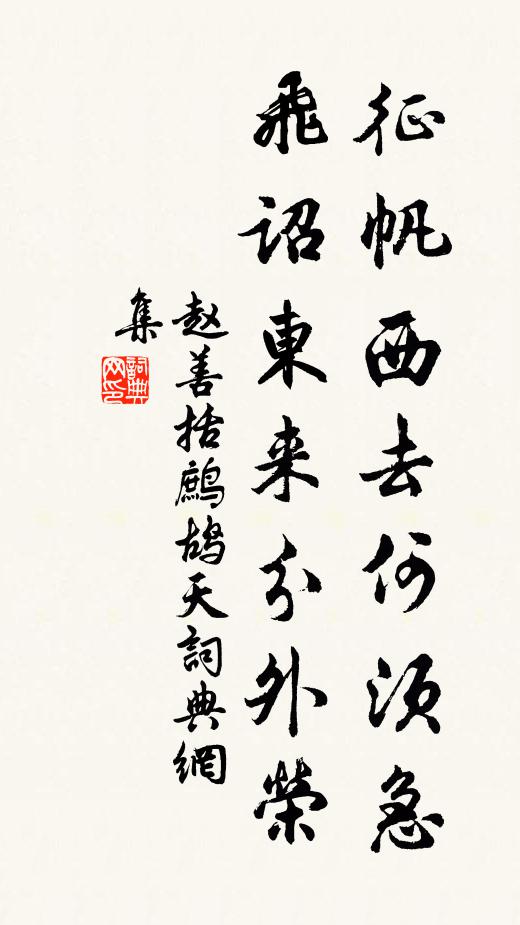 征帆西去何须急
飛詔東来分外榮
赵善括鷓鴣天詞典網
集
詞典
网印